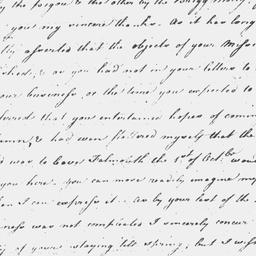 by the forgoe & the other by the
you my sincere thanks. As it has long
asserted that the objects of your Misso
as you had not in your letters to
our business, or the time you expected to
ferred that you entertained hopes of comin
& had even flattered myself that the
was to leave Falmouth the 1st of Octbr wo
you here. You can more readily imagine my
an I can express it. As by your last of the
ness was not completed I sincerely concur
of your staying till spring, but I wish